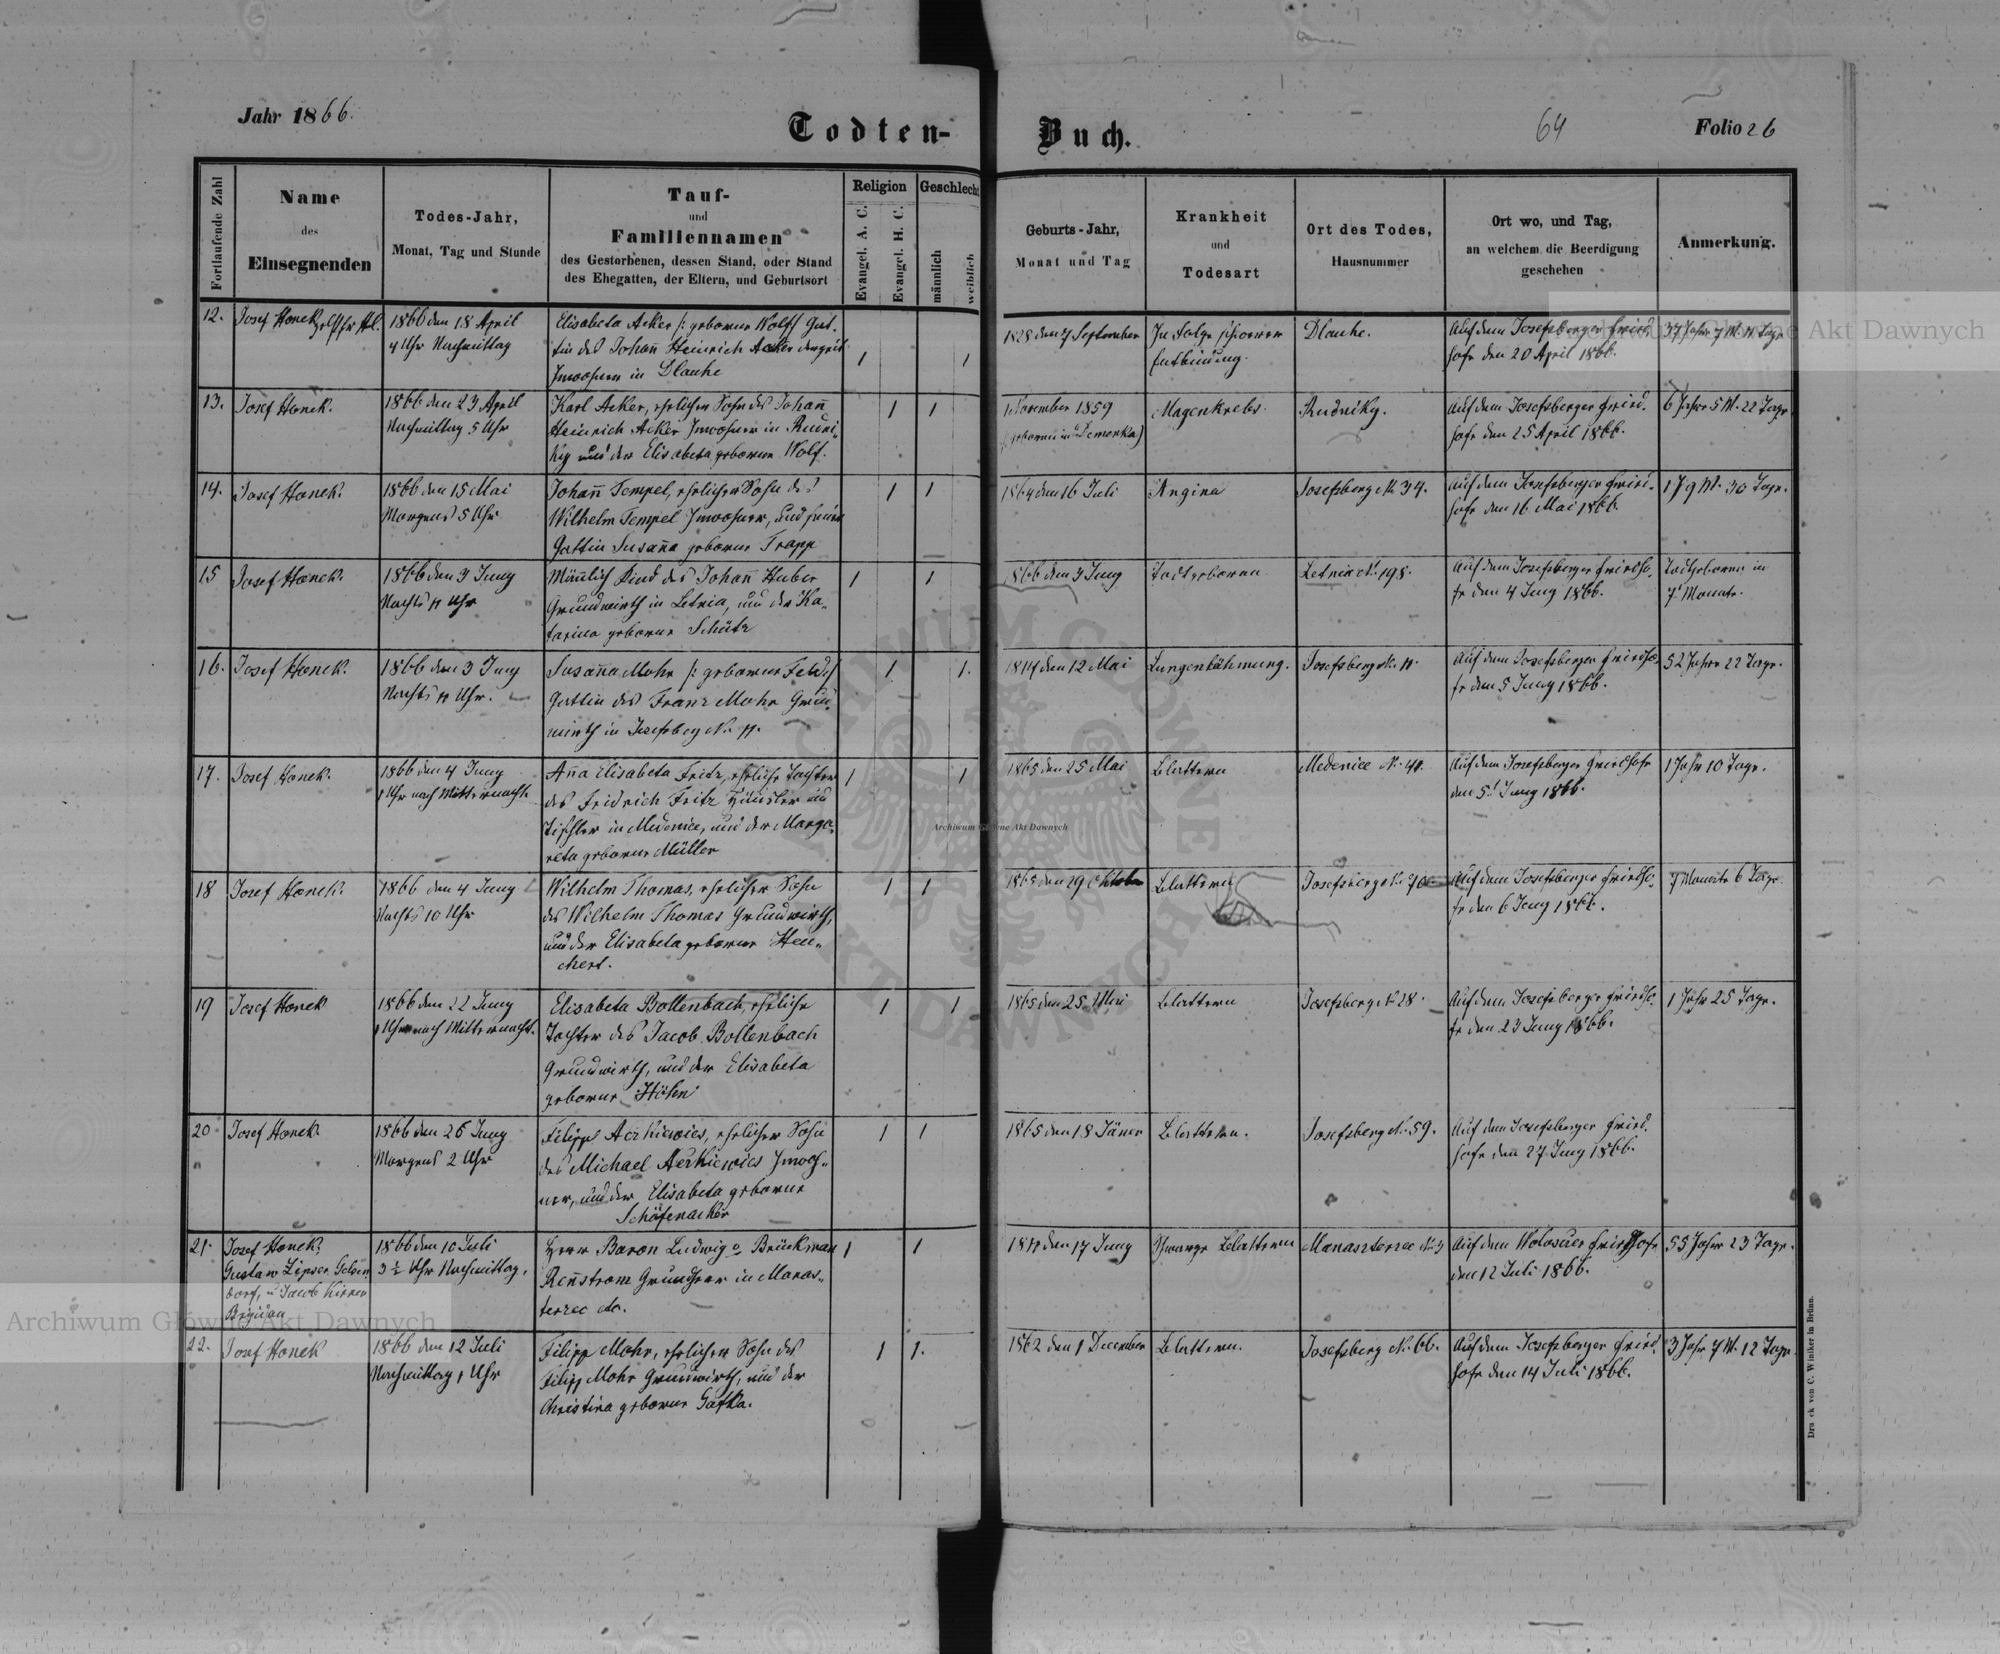 Jahr 1866.
Todten-Buch.
64
Folio 26
Fortlaufende Zahl
Name
des
Einsegnenden
Todes-Jahr,
Monat, Tag und Stunde
Tauf-
und
Familiennamen
des Gestorbenen, dessen Stand, oder Stand
des Ehegatten, der Eltern, und Geburtsort
Religion
Evangel. A. C.
Evangel. H. C.
Geschlecht
männlich
weiblich
Geburts-Jahr,
Monat und Tag
Krankheit
und
Todesart
Ort des Todes,
Hausnummer
Ort wo, und Tag,
an welchem die Beerdigung
geschehen
Anmerkung.
12.
Josef Honek
1866 den 18 April
4 Uhr Nachmittag
Elisabeta Acker /: geborene Wolf :/ Gat-
tin des Johan̄ Heinrich Acker
Inwohner in Dlauhe
1
1
1828 den 7 September
In Folge schwerer
Entbindung.
Dlauhe.
Auf dem Josefsberger Fried-
hofe den 20 April 1866.
37 Jahre 7 M. 11 Tage
13.
Josef Honek.
1866 den 23 April
Nachmittag 5 Uhr
Karl Acker, ehelicher Sohn des Johan̄
Heinrich Acker Inwohner in Rudni-
ky und der Elisabeta geborene Wolf.
1
1
1 November 1859
(geboren in Demenka)
Magenkrebs.
Rudniky.
Auf dem Josefsberger Fried-
hofe den 25 April 1866.
6 Jahre 5 M. 22 Tage
14.
Josef Honek.
1866 den 15 Mai
Morgens 5 Uhr
Johan̄ Tempel, ehelicher Sohn des
Wilhelm Tempel Inwohner, und seiner
Gattin Susan̄a geborene Trapp
1
1
1864 den 16 Juli
Angina
Josefsberg N. 34.
Auf dem Josefsberger Fried-
hofe den 16 Mai 1866.
1 J 9 M. 30 Tage.
15
Josef Honek.
1866 den 3 Juny
Nachts 11 Uhr
Män̄lich Kind des Johan̄ Huber
Grundwirth in Letnia, und der Ka-
tarina geborene Schütz
1
1
1866 den 3 Juny
Todtgeboren
Letnia N. 198.
Auf dem Josefsberger Friedho-
fe den 4 Juny 1866.
Todtgeboren in
7 Monate.
16.
Josef Honek.
1866 den 3 Juny
Nachts 11 Uhr.
Susan̄a Mohr /: geborene Feld :/
Gattin des Franz Mohr Grund-
wirth in Josefsberg N. 11.
1
1.
1814 den 12 Mai
Lungenlähmung.
Josefsberg N. 11.
Auf dem Josefsberger Friedho-
fe den 5 Juny 1866.
52 Jahre 22 Tage.
17.
Josef Honek.
1866 den 4 Juny
1 Uhr nach Mitternacht.
An̄a Elisabeta Fritz, eheliche Tochter
des Fridrich Fritz Häusler und
Tischler in Medenice, und der Marga-
reta geborene Müller
1
1
1865 den 25 Mai
Blattern
Medenice N. 41.
Auf dem Josefsberger Friedhofe
den 5t Juny 1866.
1 Jahr 10 Tage.
18
Josef Honek.
1866 den 4 Juny
Nachts 10 Uhr
Wilhelm Thomas, ehelicher Sohn
des Wilhelm Thomas Grundwirth,
und der Elisabeta geborene Heu-
chert.
1
1
1865 den 29 Oktober
Blattern
Josefsberg N. 70
Auf dem Josefsberger Friedho-
fe den 6 Juny 1866.
7 Monate 6 Tage
19
Josef Honek
1866 den 22 Juny
1 Uhr nach Mitternacht.
Elisabeta Bollenbach, eheliche
Tochter des Jacob Bollenbach
Grundwirth, und der Elisabeta
geborene Höhn
1
1
1865 den 25 Mai
Blattern
Josefsberg N 28.
Auf dem Josefsberger Friedho-
fe den 23 Juny 1866.
1 Jahr 25 Tage.
20
Josef Honek.
1866 den 26 Juny
Morgens 2 Uhr
Filipp Aerkiewics, ehelicher Sohn
des Michael Aerkiewics Inwoh-
ner, und der Elisabeta geborene
Schäfenacker
1
1
1865 den 18 Jäner
Blattern.
Josefsberg N. 59.
Auf dem Josefsberger Fried-
hofe den 27 Juny 1866.
21.
Josef Honek,
Gustav Lipser Gelsen
dorf, u Jacob
Brigidau
1866 den 10 Juli
3 ½ Uhr Nachmittag.
Herr Baron Ludwig Brückman
Ren̄strom Grundherr in Monas-
terzec etc.
1
1
1811 den 17 Juny
Schwarze Blattern
Monasterzec N. 3
Auf dem Friedhofe
den 12 Juli 1866.
55 Jahre 23 Tage.
22.
Josef Honek
1866 den 12 Juli
Nachmittag 1 Uhr
Filipp Mohr, ehelicher Sohn des
Filipp Mohr Grundwirth, und der
Christina geborene Gafka.
1
1.
1862 den 1 December
Blattern.
Josefsberg N. 66.
Auf dem Josefsberger Fried-
hofe den 14 Juli 1866.
3 Jahr 7 M. 12 Tage
Druck von C. Winiker in Brünn.
Archiwum Główne Akt Dawnych
Archiwum Główne Akt Dawnych
Archiwum Główne Akt Dawnych
ARCHIWUM GŁÓWNE AKT DAWNYCH